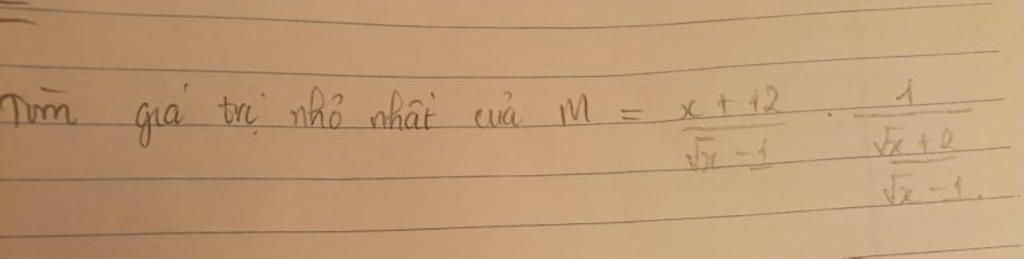 Tìm giá trị nhỏ nhất của M = \frac{x + 12}{\sqrt{x} - 1} . \frac{1}{\frac{\sqrt{x} + 2}{\sqrt{x} - 1}}.